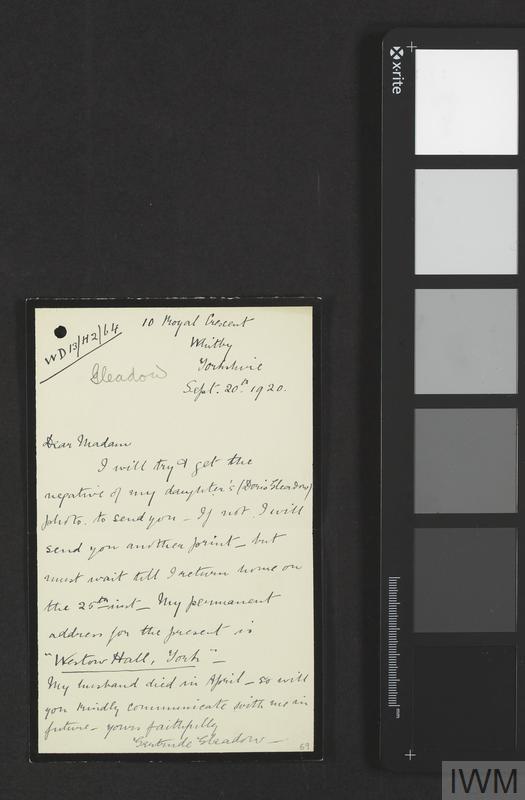 WD13/H2/64
10 Royal Crescent
Whitby
Yorkshire
Gleadow
Sept. 20th 1920.
Dear Madam
I will try & get the
negative of my daughter's (Doris Gleadow)
photo. to send you – If not, I will
send you another print – but
must wait till I return home on
the 25th inst – My permanent
address for the present is
"Westow Hall, York" –
My husband died in April – so will
you kindly communicate with me in
future – yours faithfully
Gertrude Gleadow –
69
x·rite
mm
IWM